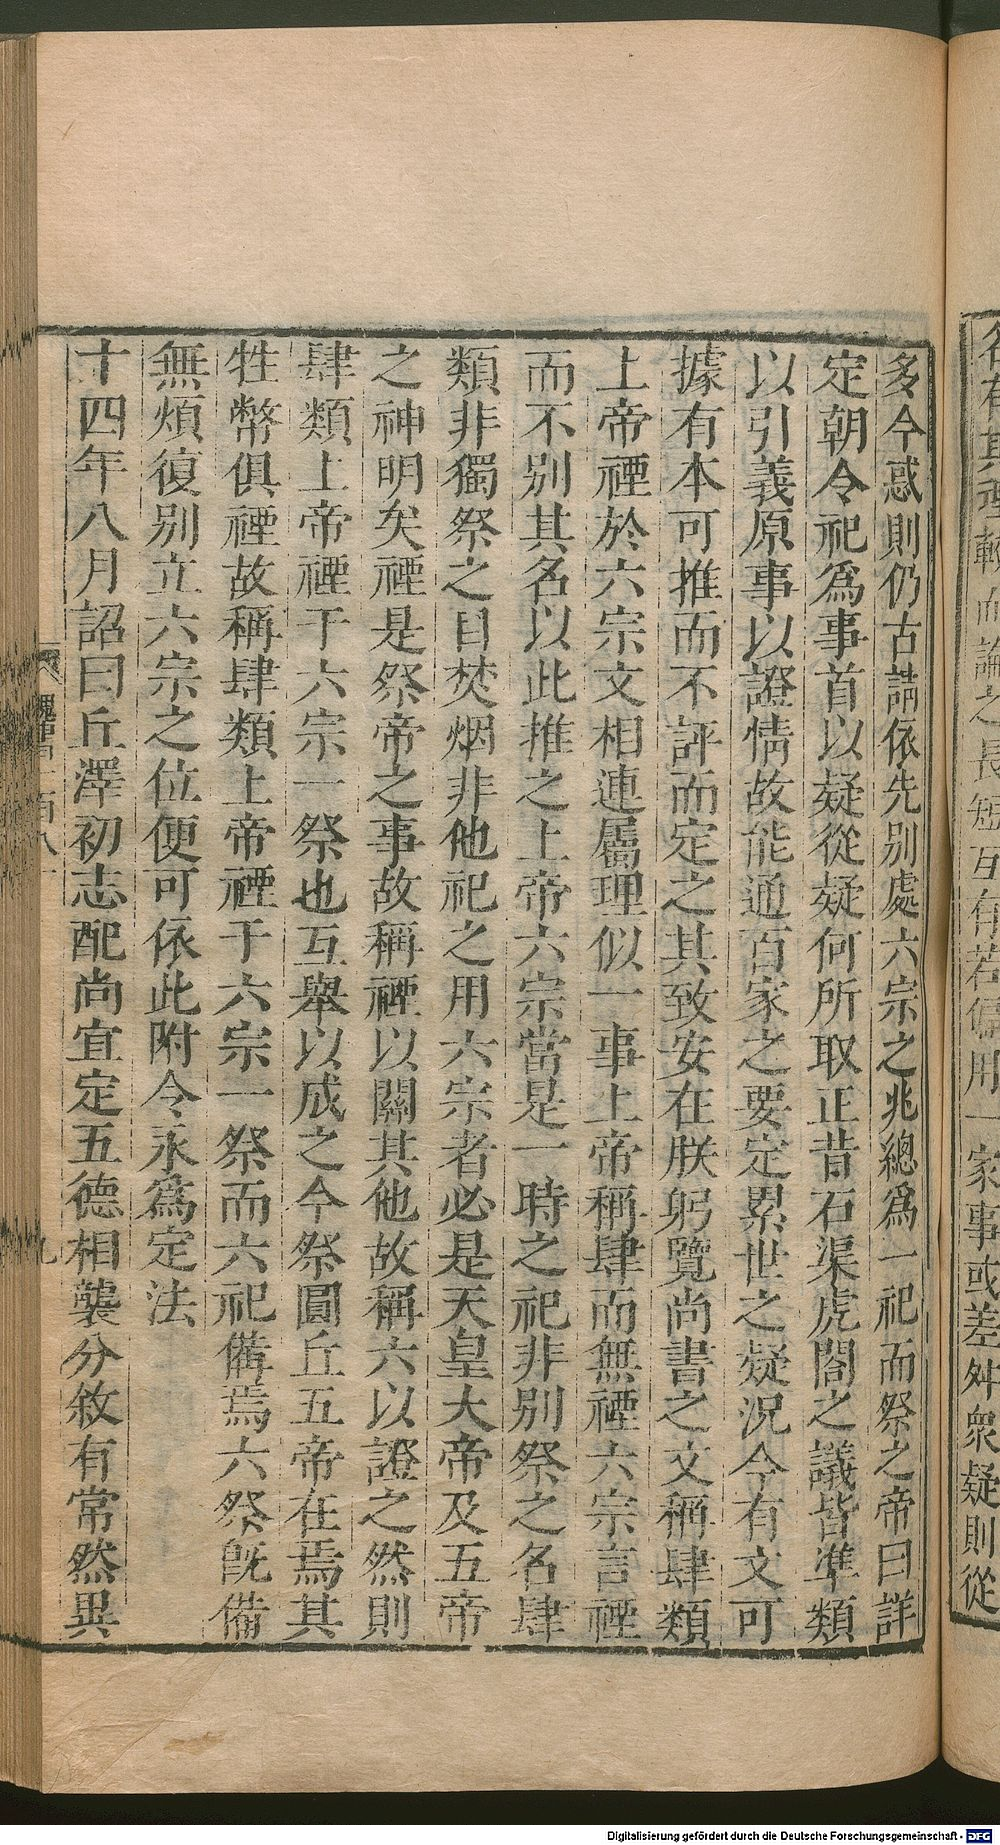 各有其理較而論之長短互有若偏用一家事或差舛衆疑則從
多今惑則仍古請依先别處六宗之兆總爲一祀而祭之帝曰詳
定朝令祀爲事首以疑從疑何所取正昔石渠虎閣之議皆準類
以引義原事以證情故能通百家之要定累世之疑况今有文可
據有本可推而不評而定之其致安在朕躬覽尚書之文稱肆類
上帝禋於六宗文相連屬理似一事上帝稱肆而無禋六宗言禋
而不别其名以此推之上帝六宗當是一時之祀非别祭之名肆
類非獨祭之目焚烟非他祀之用六宗者必是天皇大帝及五帝
之神明矣禋是祭帝之事故稱禋以關其他故稱六以證之然則
肆類上帝禋于六宗一祭也互舉以成之今祭圓丘五帝在焉其
牲幣俱禋故稱肆類上帝禋于六宗一祭而六祀備焉六祭既備
無煩復别立六宗之位便可依此附令永爲定法
十四年八月詔曰丘澤初志配尚宜定五德相襲分敘有常然異
魏書志一百八 九
Digitalisierung gefördert durch die Deutsche Forschungsgemeinschaft - DFG